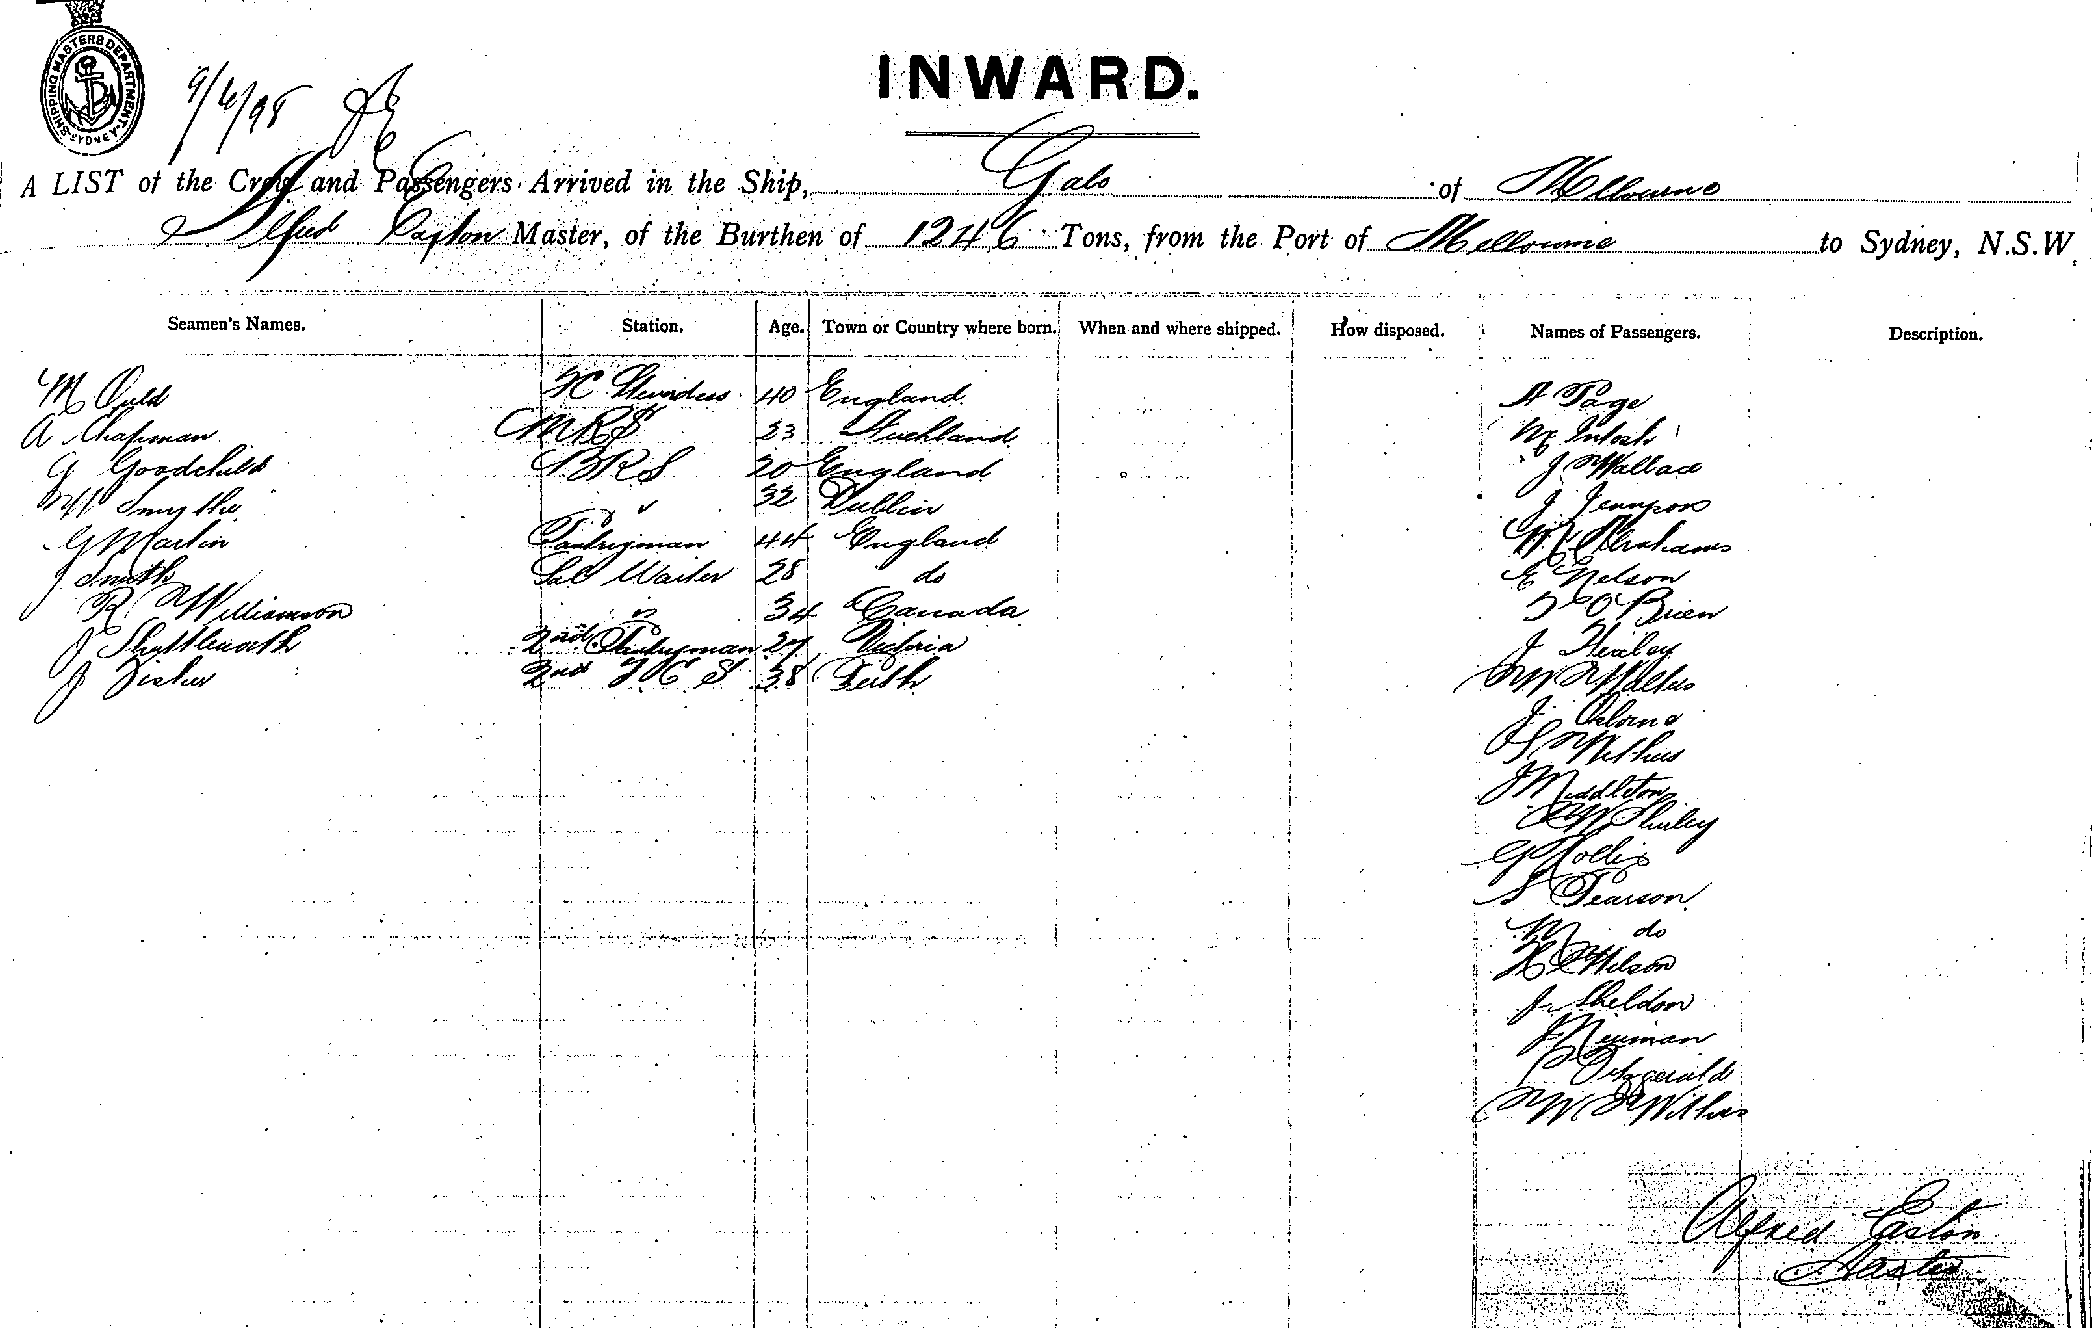 SHIPPING MASTERS DEPARTMENT. SYDNEY
9/4/98
INWARD.
A LIST of the Crew and Passengers Arrived in the Ship, Gabo of Melbourne
Alfred Easton Master, of the Burthen of 1246 Tons, from the Port of Melbourne to Sydney, N.S.W.
Seamen's Names. Station. Age. Town or Country where born. When and where shipped. How disposed. Names of Passengers. Description.
M Ould Stewardess 40 England A Page
A Chapman MRS 23 Auckland McIntosh
G Goodchild BRS 20 England J Wallace
W Smythe " 32 Dublin J
G Martin Pantryman 44 England W Abrahams
J Smith Sal Waiter 28 do E Nelson
R Williamson " 34 Canada T O'Brien
J Shuttleworth 2nd Pantryman 27 Victoria J
J Fisher 2nd F C S 38 Leith W Walters
J Osborne
S Withers
J Middleton
W Shirley
G Hollis
S Pearson
M do
H Wilson
J Sheldon
J Newman
P Fitzgerald
W Withers
Alfred Easton
Master